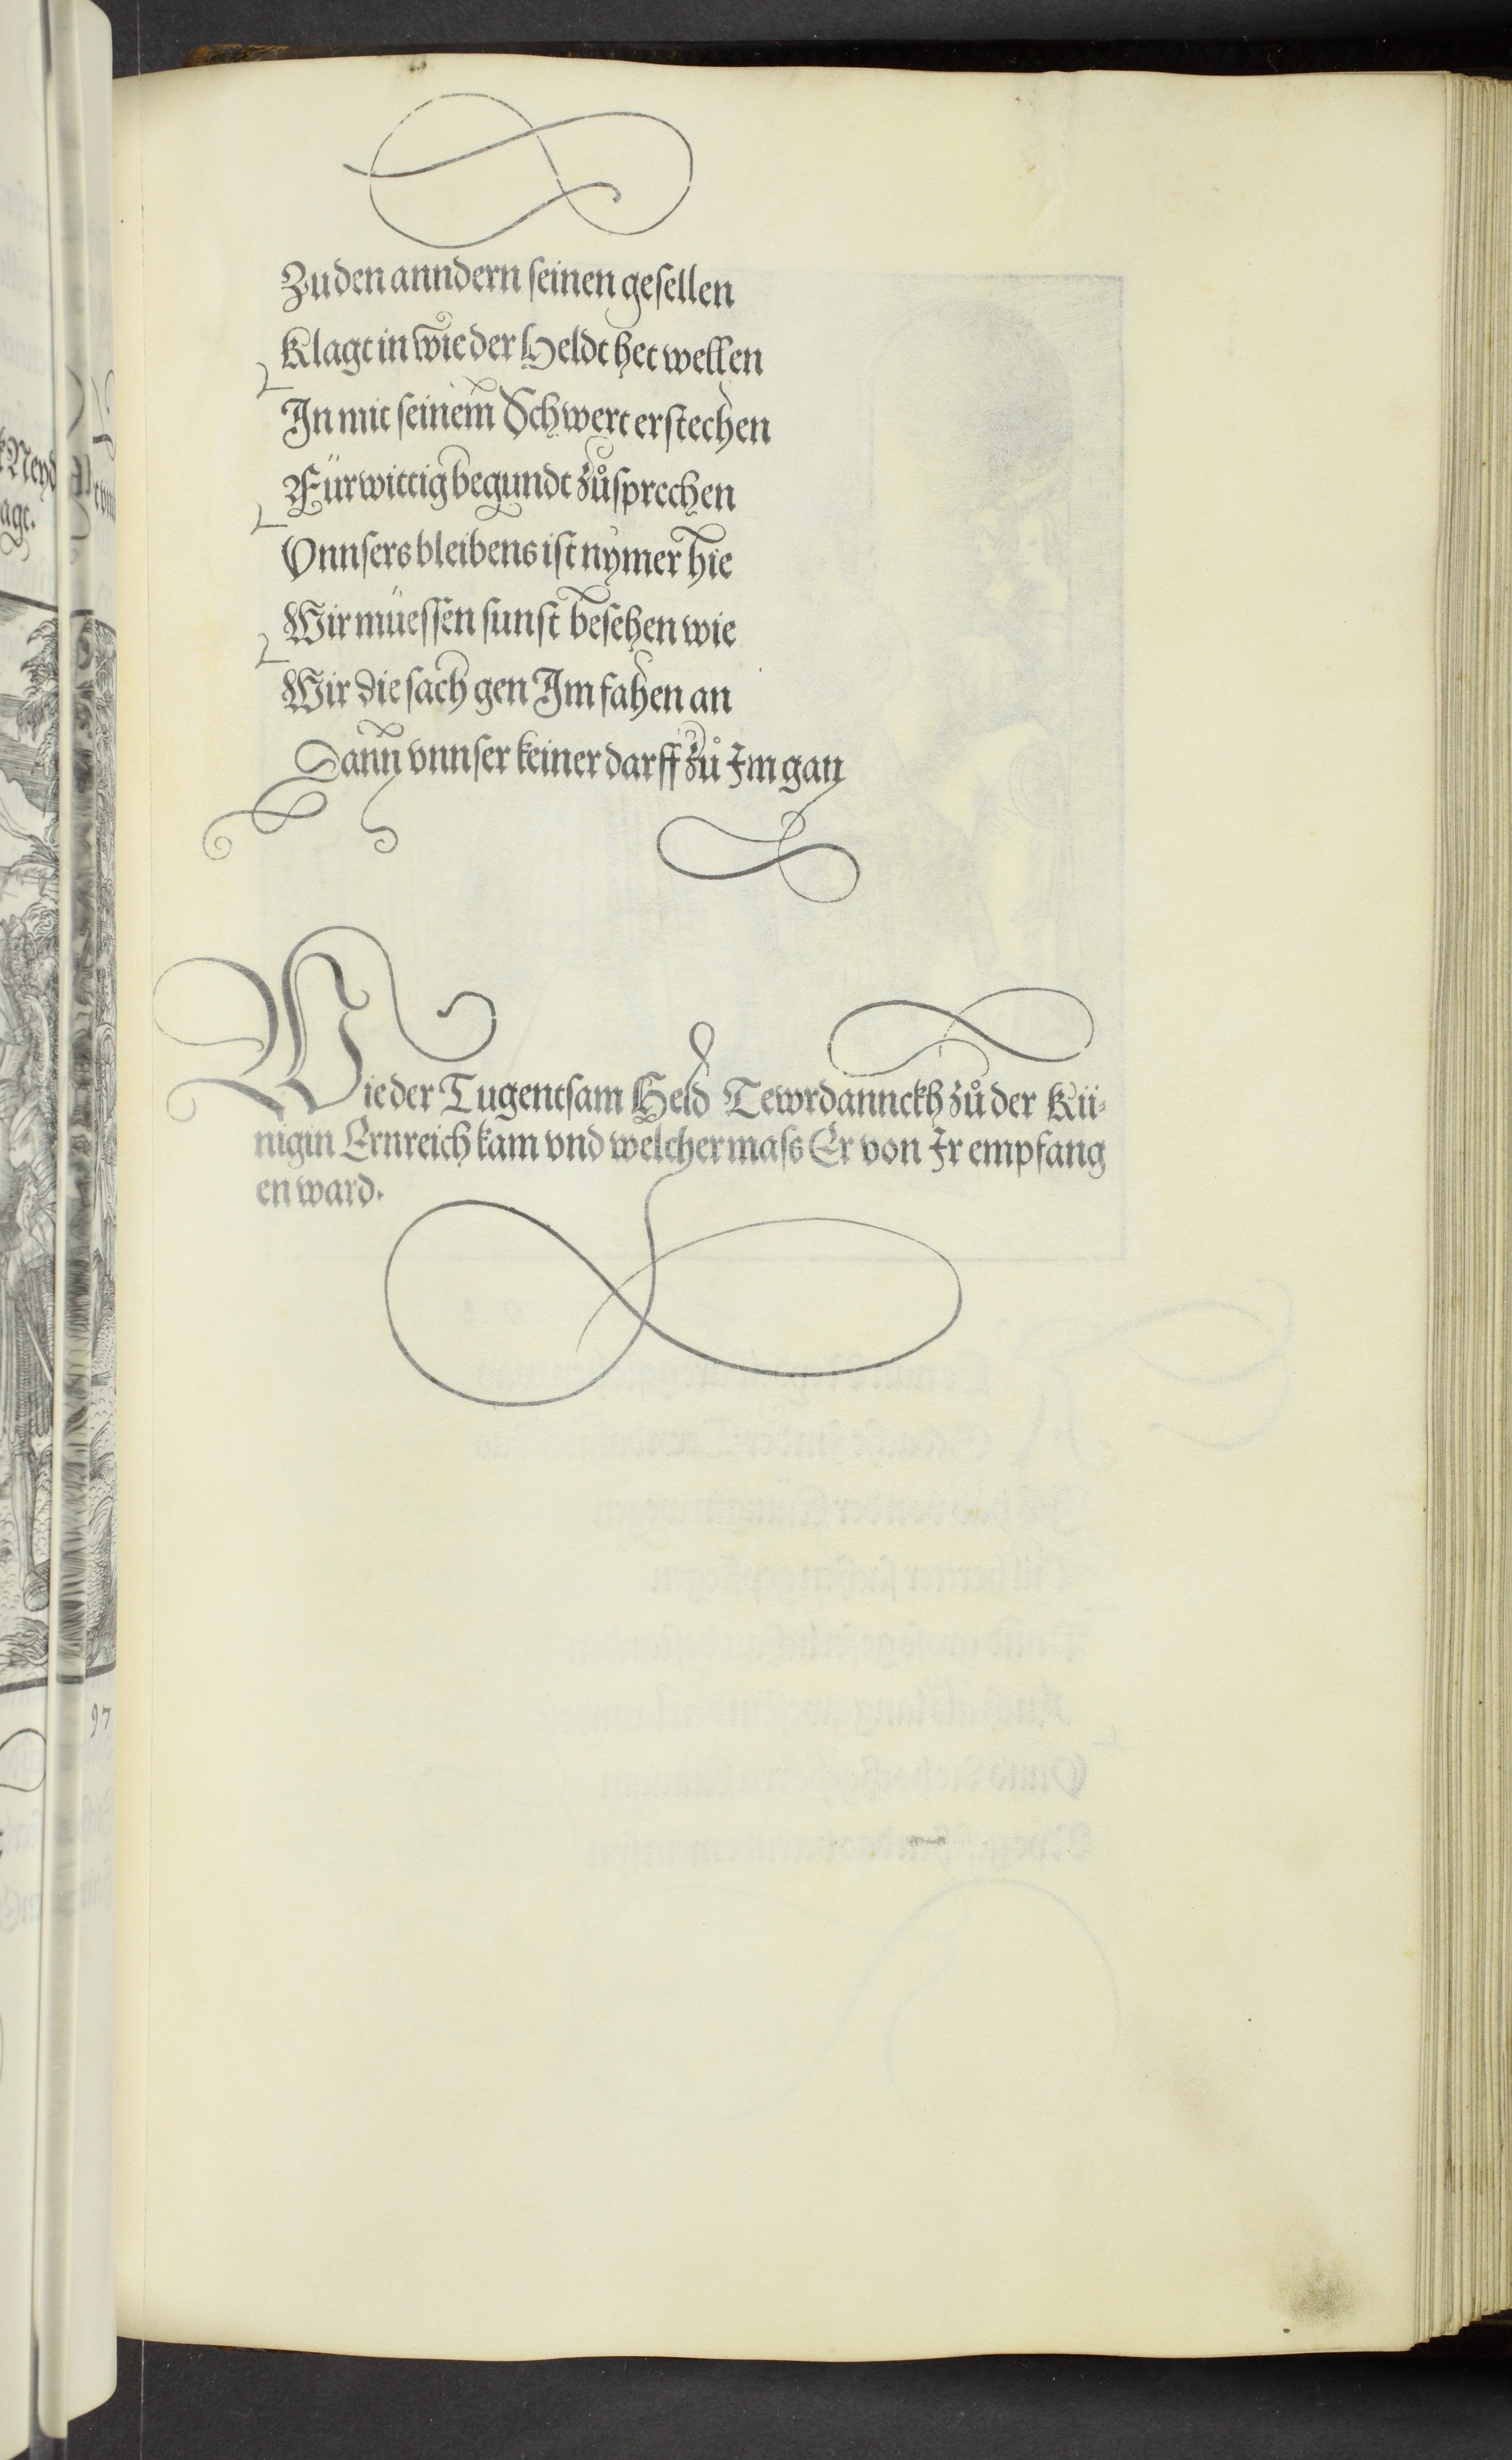 Zu den anndern seinen gesellen
Klagt in wie der Heldt het wellen
In mit seinem Schwert erstechen
Fürwittig begundt zůsprechen
Vnnsers bleibens ist nymer hie
Wir müessen sunst besehen wie
Wir die sach gen Im fahen an
Dann vnnser keiner darff zů Im gan
Wie der Tugentsam Held Tewrdannckh zů der Kü-
nigin Ernreich kam vnd welchermass Er von Ir empfang
en ward.
97